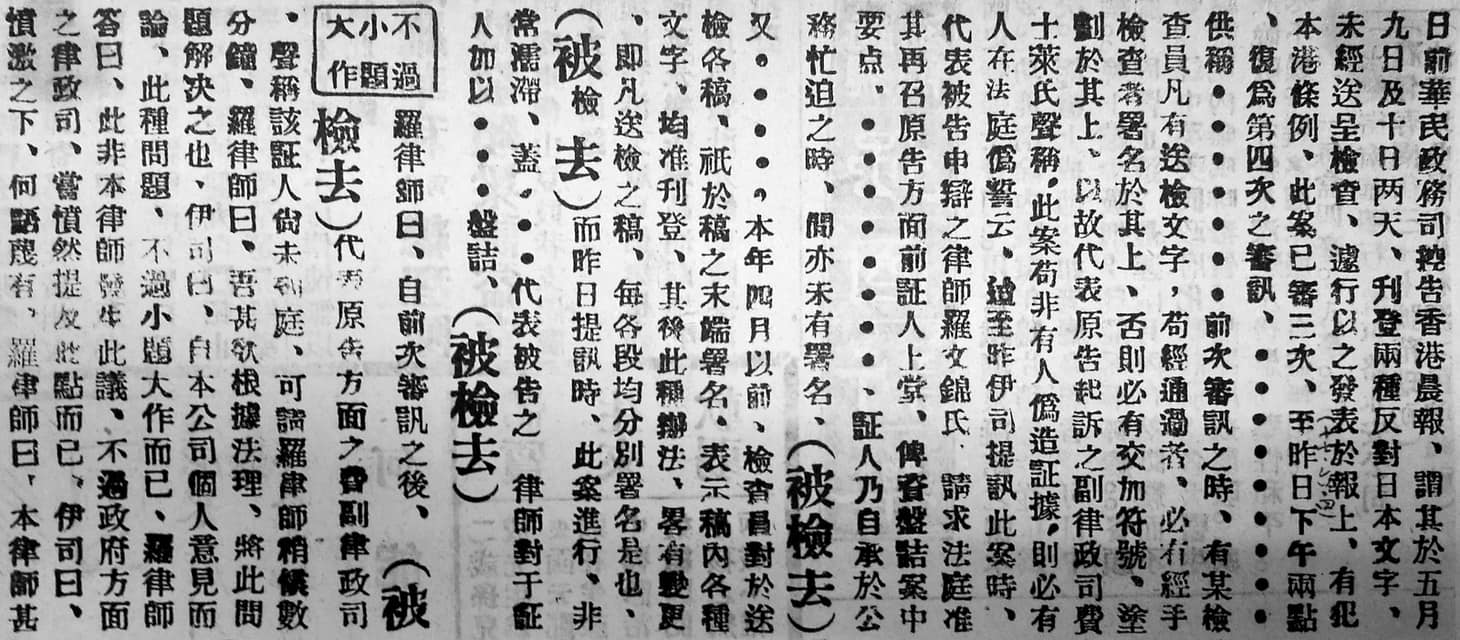 日前華民政務司控告香港晨報、謂其於五月
九日及十日两天、刊登兩種反對日本文字、
未經送呈檢查、遽行以之發表於報上、有犯
本港條例、此案已審三次、至昨日下午兩點
、復爲第四次之審訊、●●●●●●●●
供稱●●●●●●前次審訊之時、有某檢
查員凡有送檢文字，苟經通過者、必有經手
檢查者署名於其上、否則必有交加符號、塗
劃於其上、以故代表原告起訴之副律政司費
士萊氏聲稱，此案苟非有人僞造証據，則必有
人在法庭僞誓云、迨至昨伊司提訊此案時、
代表被告申辯之律師羅文錦氏、請求法庭准
其再召原告方面前証人上堂、俾資盤詰案中
要点．●●●●●●●●、証人乃自承於公
務忙迫之時、間亦未有署名、（被檢去）
又●●●●●，本年四月以前、檢查員對於送
檢各稿、祇於稿之末端署名、表示稿內各種
文字、均准刊登、其後此種辦法、畧有變更
、即凡送檢之稿、每各段均分別署名是也、
（被檢去）而昨日提訊時、此案進行、非
常濡滯、蓋●●●代表被告之　律師對于証
人加以●●●●盤詰、（被檢去）
不過小題大作
羅律師曰、自前次審訊之後、（被
檢去）代表原告方面之費副律政司
、聲稱該証人尙未到庭、可請羅律師稍候數
分鐘、羅律師曰、吾甚欲根據法理、將此問
題解决之也、伊司曰、自本公司個人意見而
論、此種問題、不過小題大作而已、羅律師
答曰、此非本律師發生此議、不過政府方面
之律政司、嘗憤然提及此點而已、伊司曰、
憤激之下、何語蔑有、羅律師曰、本律師甚